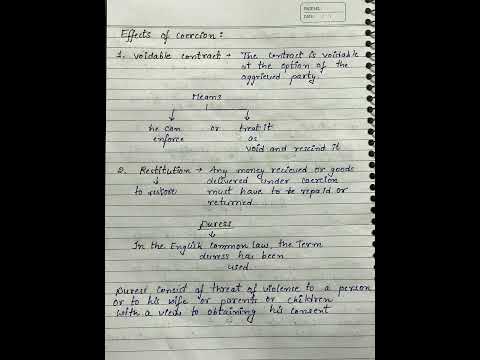 PAGE NO.
DATE:
Effects of coercion :
1. voidable contract → The contract is voidable
at the option of the
aggrieved party.
Means
he can or treat it
enforce as
void and rescind it
2. Restitution → Any money recieved or goods
delivered under coercion
to restore must have to be repaid or
returned
Duress
In the English Common law, the term
duress has been
used.
Duress consist of threat of violence to a person
or to his wife or parents or children
with a view to obtaining his consent